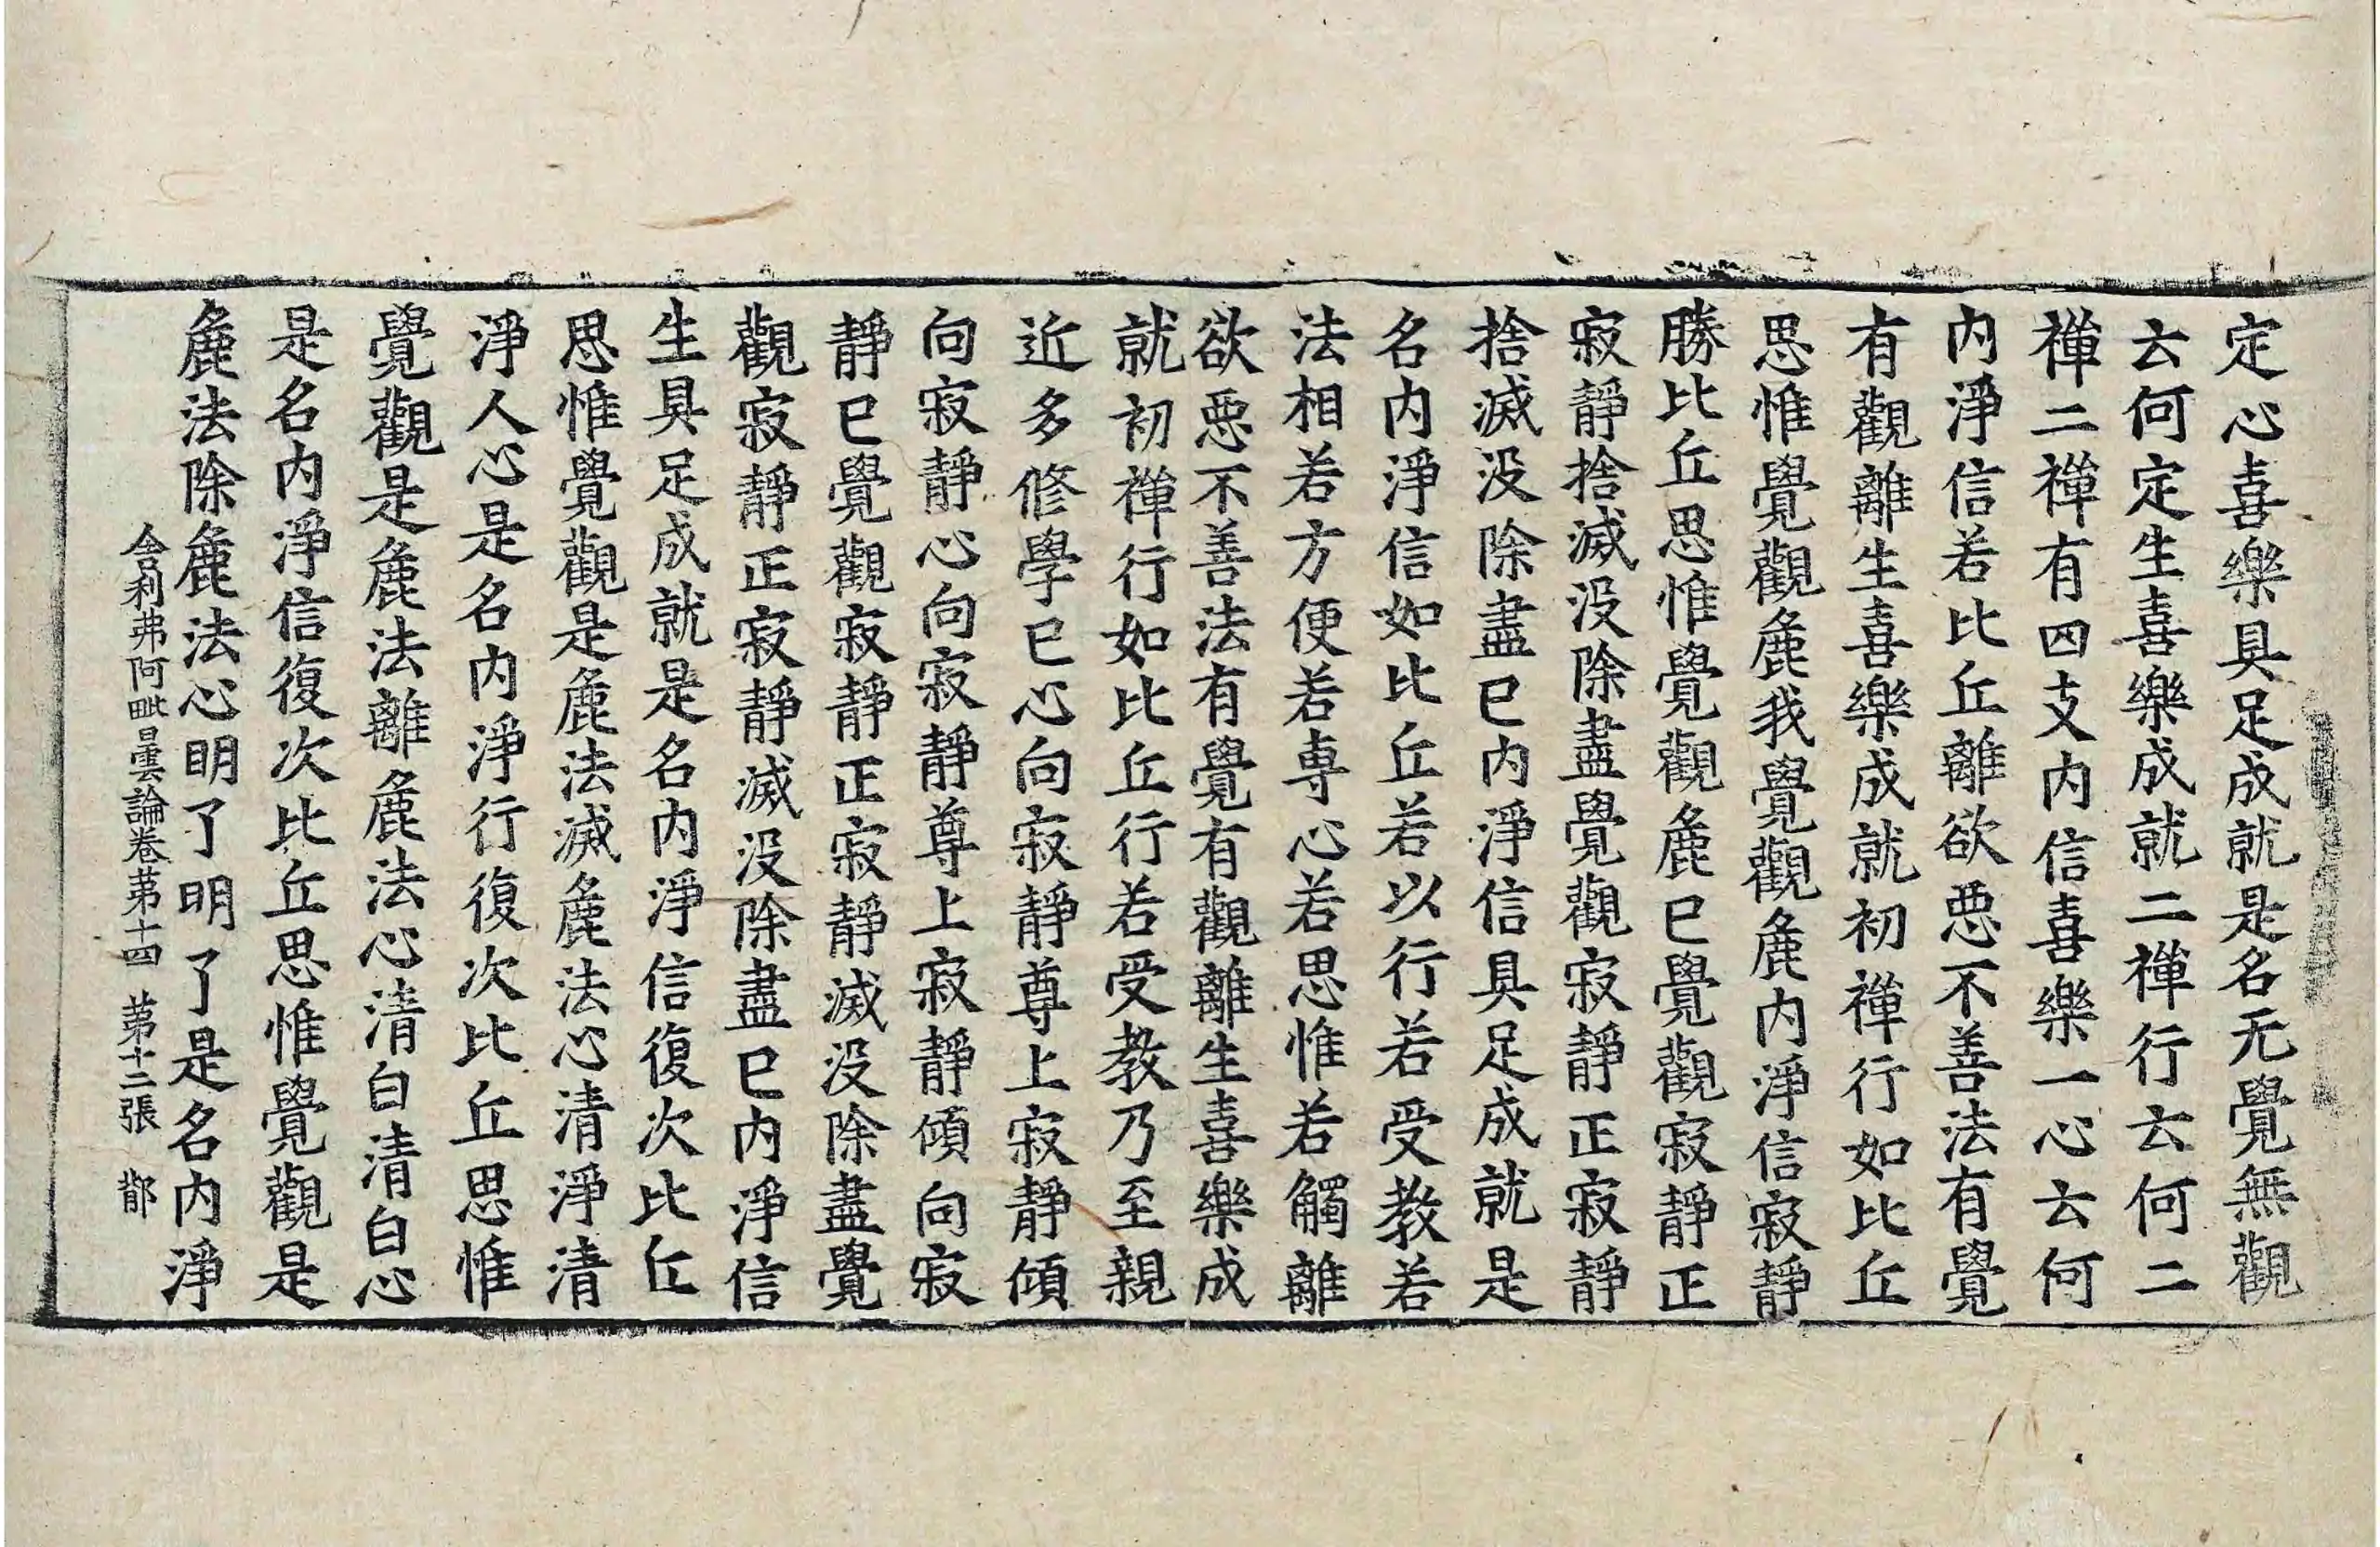 定心喜樂具足成就是名无覺無觀
云何定生喜樂成就二禪行云何二
禪二禪有四支内信喜樂一心云何
内淨信若比丘離欲惡不善法有覺
有觀離生喜樂成就初禪行如比丘
思惟覺觀麁我覺觀麁内淨信寂靜
勝比丘思惟覺觀麁已覺觀寂靜正
寂靜捨滅没除盡覺觀寂靜正寂靜
捨滅没除盡已内淨信具足成就是
名内淨信如比丘若以行若受教若
法相若方便若專心若思惟若觸離
欲惡不善法有覺有觀離生喜樂成
就初禪行如比丘行若受教乃至親
近多修學已心向寂靜尊上寂靜傾
向寂靜心向寂靜尊上寂靜傾向寂
靜已覺觀寂靜正寂靜滅没除盡覺
觀寂靜正寂靜滅没除盡已内淨信
生具足成就是名内淨信復次比丘
思惟覺觀是麁法滅麁法心清淨清
淨人心是名内淨行復次比丘思惟
覺觀是麁法離麁法心清白清白心
是名内淨信復次比丘思惟覺觀是
麁法除麁法心明了明了是名内淨
舍利弗阿毗曇論卷苐十四 苐十二張 鄑